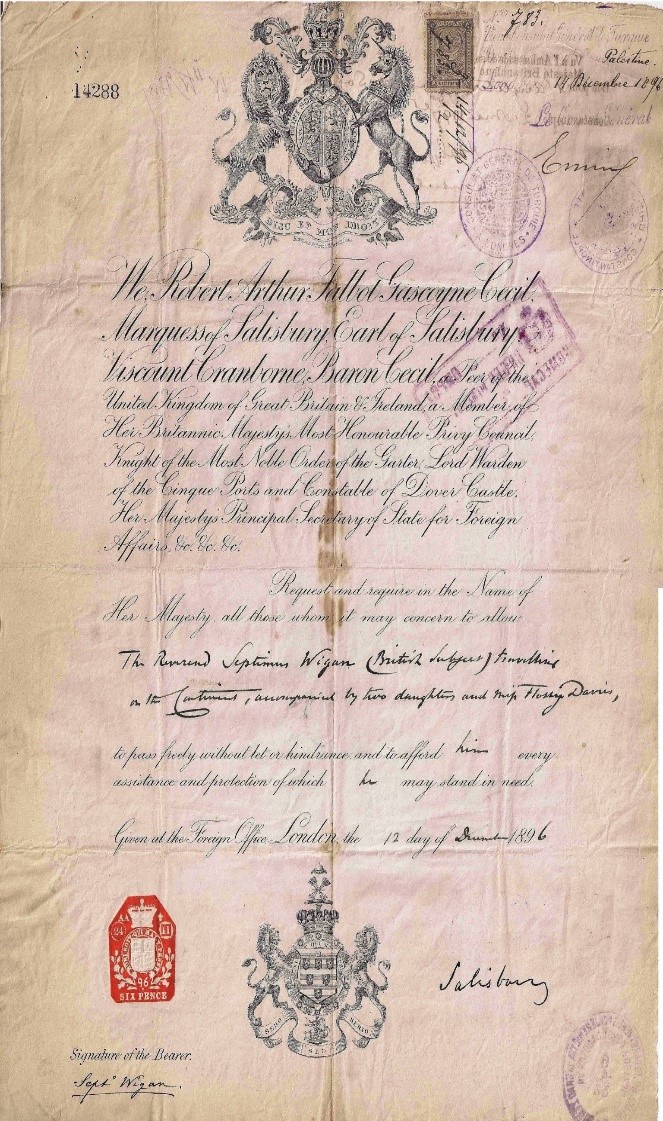 14288
No 783.
Palestine.
14 Décembre 1896
DIEU ET MON DROIT
CONSULAT GENERAL DE TURQUIE
LONDRES
We, Robert Arthur Talbot Gascoyne Cecil,
Marquess of Salisbury, Earl of Salisbury,
Viscount Cranborne, Baron Cecil, a Peer of the
United Kingdom of Great Britain & Ireland, a Member of
Her Britannic Majesty's Most Honourable Privy Council,
Knight of the Most Noble Order of the Garter, Lord Warden
of the Cinque Ports and Constable of Dover Castle,
Her Majesty's Principal Secretary of State for Foreign
Affairs, &c. &c. &c.
Request and require in the Name of
Her Majesty, all those whom it may concern to allow
The Reverend Septimus Wigan (British Subject) travelling
on the Continent, accompanied by two daughters and Miss Flossy Davis,
to pass freely without let or hindrance, and to afford him every
assistance and protection of which he may stand in need.
Given at the Foreign Office, London, the 12 day of December 1896
AA
24 11
96
SIX PENCE
SERO SED SERIO
Salisbury
Signature of the Bearer.
Septs Wigan.